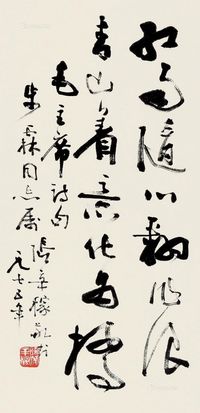 红雨随心翻作浪
青山着意化为桥
毛主席诗句
步森同志属
张辛稼书于
一九七五年